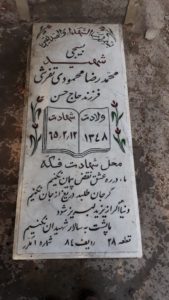 بسیجی
شهید
محمدرضا محمودی تفرشی
فرزند حاج حسن
ولادت شهادت
۱۳۴۸ ۶۵،۲،۱۲
محل شهادت فکه
ما در ره عشق نقض پیمان نکنیم
گر جان طلبد دریغ از جان نکنیم
دنیا اگر از یزید لبریز شود
ما پشت به سالار شهیدان نکنیم
قطعه ۲۸ ردیف ۸۴ شماره ۱